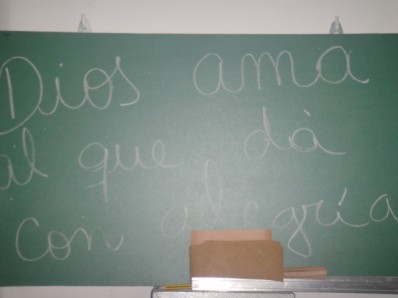 Dios ama
al que dà
con alegría